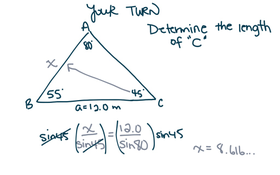 YOUR TURN
Determine the length
of "C"
A
80°
x
55°
45°
B
C
a=12.0 m
sin45 (x/sin45) = (12.0/sin80) sin45
x = 8.616...